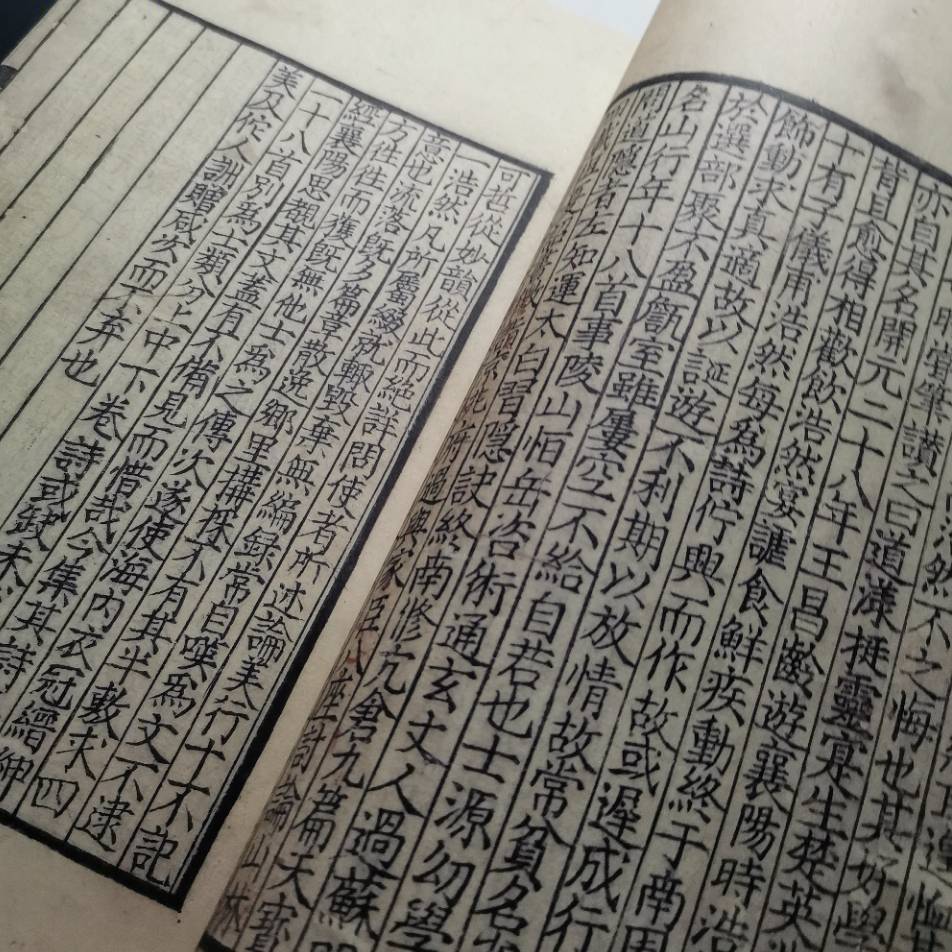 然不之悔也其好學
讚之曰道漾挺靈寔生楚英
亦自其名開元二十八年王昌齡游襄陽時浩
背且愈得相歡飲浩然宴謔食鮮疾動終于南
十有子儀甫浩然每為詩佇興而作故或遲成行
飾動求真適故以誕遊不利期以放情故常貧名
於選部聚不盈甔室雖屢空不給自若也士源幼學
名山行年十八百事陵山怕岳咨術通玄丈人過蘇
問道隱者左知運太白習隱訣終南修亢倉九篇天寶
與家臣八座討論山林
可哲從妙韻從此而絶詳問使者所述論美行十不記
一浩然凡所屬綴就輙毀棄無編録常自嘆為文不逮
意也流落既多篇章散逸鄉里搆採不有其半敷求四
方往往而獲既無他士爲之傳次遂使海内衣冠縉紳
經襄陽思覩其文蓋有不備見而惜哉今集其詩
一十八首別為士類分上中下卷詩或缺未
美及佗人詶贈咸次而不弃也